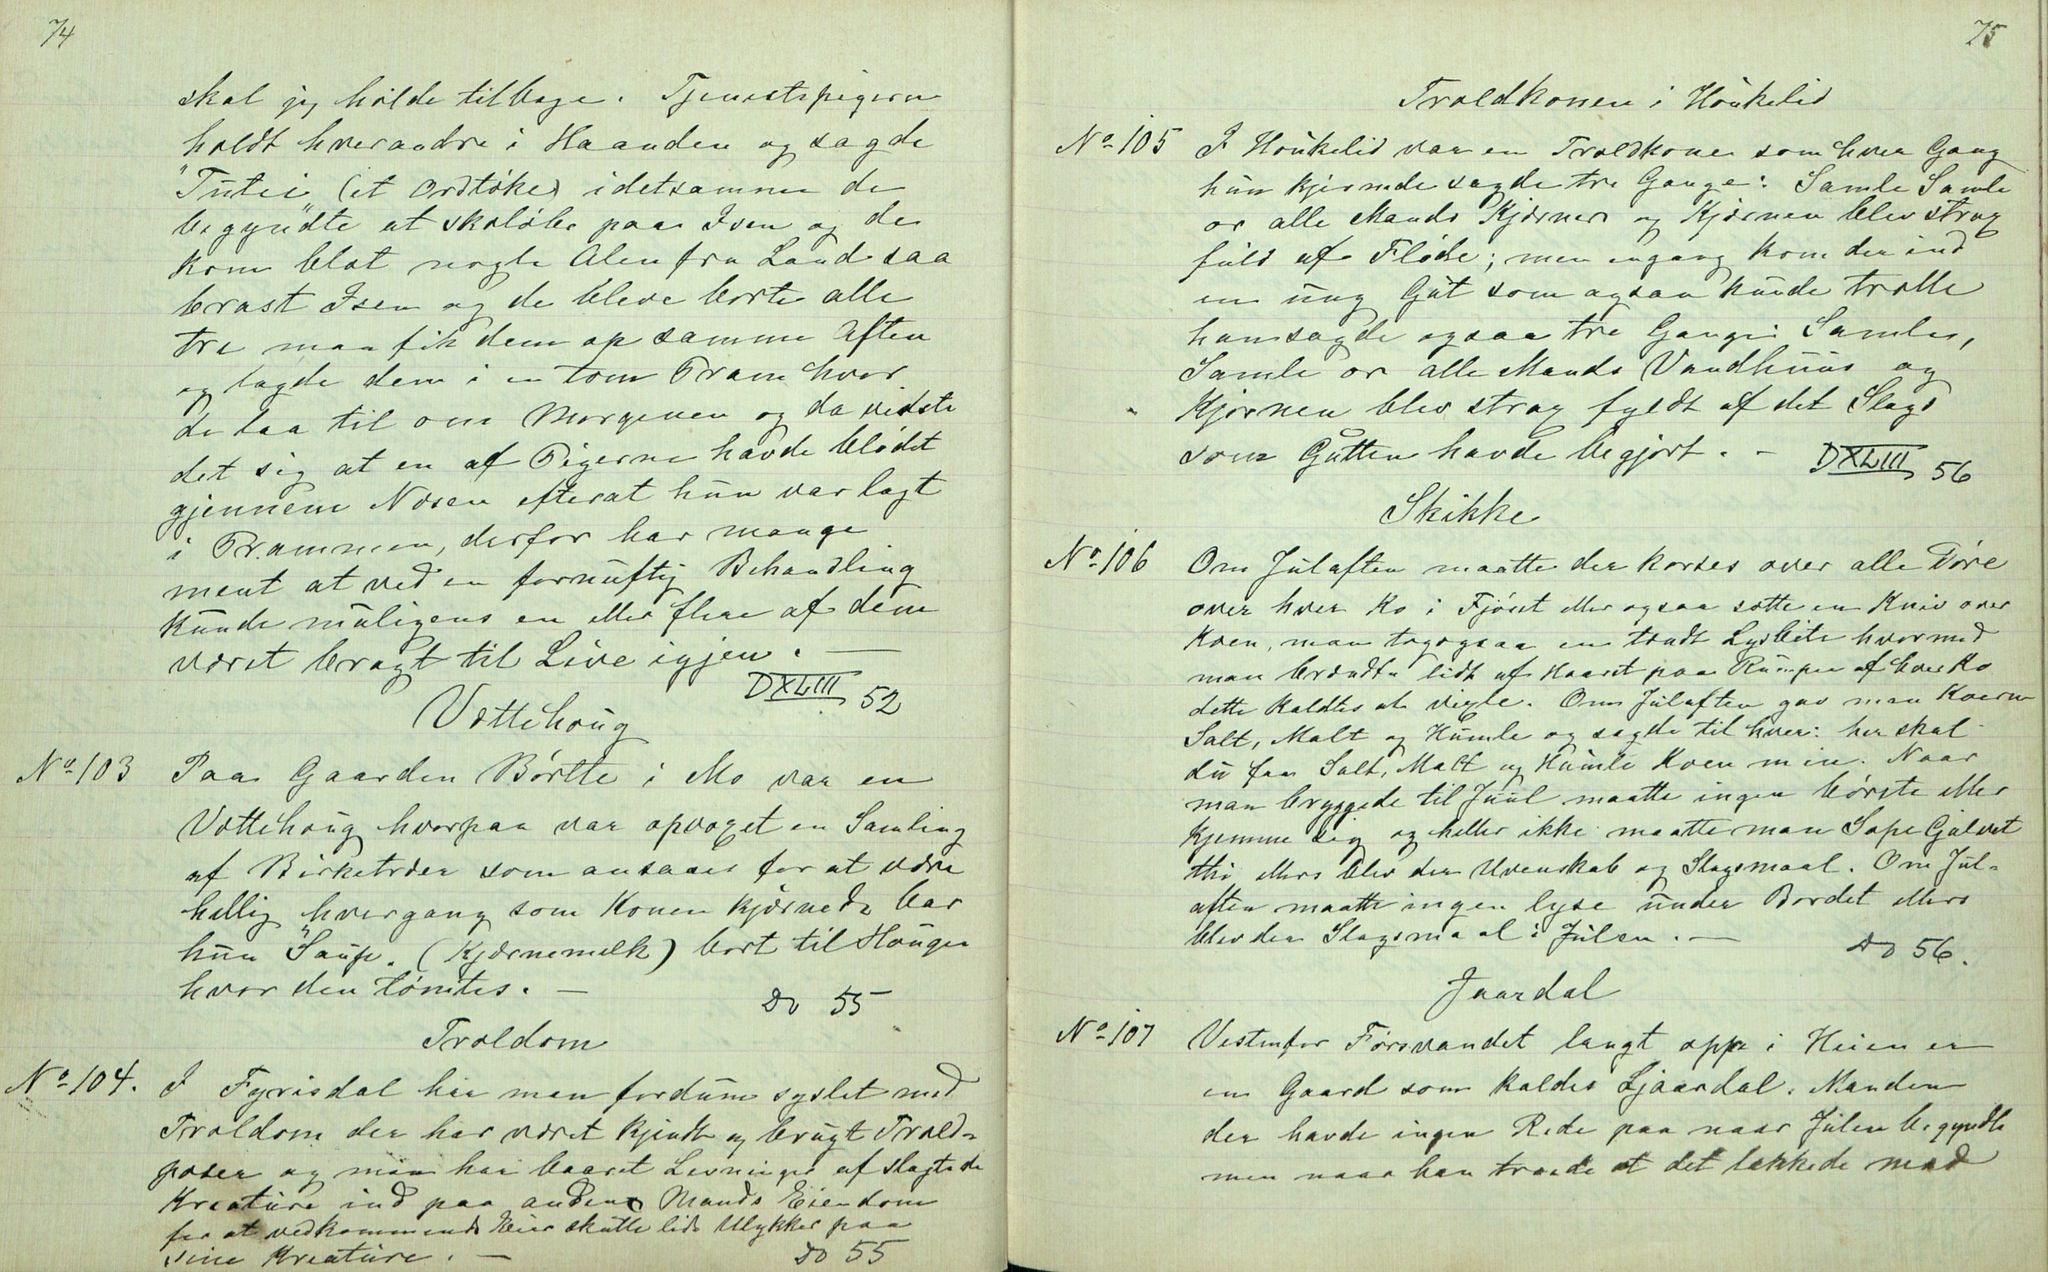 74
skal jeg holde tilbage. Tjenestepigerne
holdt hverandre i Haanden og sagde
"Tutei" (et Ordtøke) idetsamme de
begyndte at skoløbe paa Isen og de
kom blot nogle Alen fra Land saa
brast Isen og de bleve borte alle
tre man fik dem op samme Aften
og lagde dem i en tom Pram hvor
de laa til om Morgenen og da vidste
det sig at en af Pigerne havde blødet
gjennem Nøsen efterat hun var lagt
i Prammen, derfor har mange
ment at ved en fornuftig Behandling
kunde muligens en eller flere af dem
været bragt til Live igjen. —
DXLIII 52
Vættehoug
No 103 Paa Gaarden Børtte i Mo var en
Vættehoug hvorpaa var opvoxet en Samling
af Birketræer som ansaaes for at være
hellig hvergang som Konen kjærnede bar
hun "Saup" (Kjærnemelk) bort til Hougen
hvor den tømtes. —
Do 55
Troldom
No 104. I Fyrisdal har man fordum syslet med
Troldom der har været kjendt og brugt Trold-
poser og man har baaret Levninger af slagtede
Kreature ind paa andens Mands Eiendom
for at vedkommende Eier skulle lide Ulykker paa
sine Kreature. —
Do 55
75
Troldkonen i Houkelid
No 105 I Houkelid var en Troldkone som hver Gang
hun kjernede sagde tre Gange: Samle Samle
or alle Mands Kjærner og Kjærnen blev strax
fuld af Fløde; men engang kom der ind
en ung Gut som ogsaa kunde trolle
han sagde ogsaa tre Gange: Samle,
Samle or alle Mands Vandhuus og
Kjærnen blev strax fyldt af det Slags
som Gutten havde begjært. -
DXLIII 56
Skikke
No 106 Om Julaften maatte der korses over alle Døre
over hver Ko i Fjøset eller ogsaa sætte en Kniv over
Koen, man tog ogsaa en tændt Lysbite hvormed
man brændte lidt af Haaret paa Rumpen af hver Ko
dette kaldtes at vigle. Om Julaften gav man Koerne
Salt, Malt og Humle og sagde til hver: her skal
du faa Salt, Malt og Humle Koen min. Naar
man bryggede til Juul maatte ingen børste eller
kjemme sig og heller ikke maatte man Sope Gulvet
thi ellers blev der Uvenskab og Slagsmaal. Om Jul-
aften maatte ingen lyse under Bordet ellers
blev der Slagsmaal i Julen. —
Do 56.
Jaardal
No 107 Vestenfor Førsvandet langt oppe i Heien er
en Gaard som kaldes Ljaardal. Manden
der havde ingen Rede paa naar Julen begyndte
men naar han troede at det lakkede mod